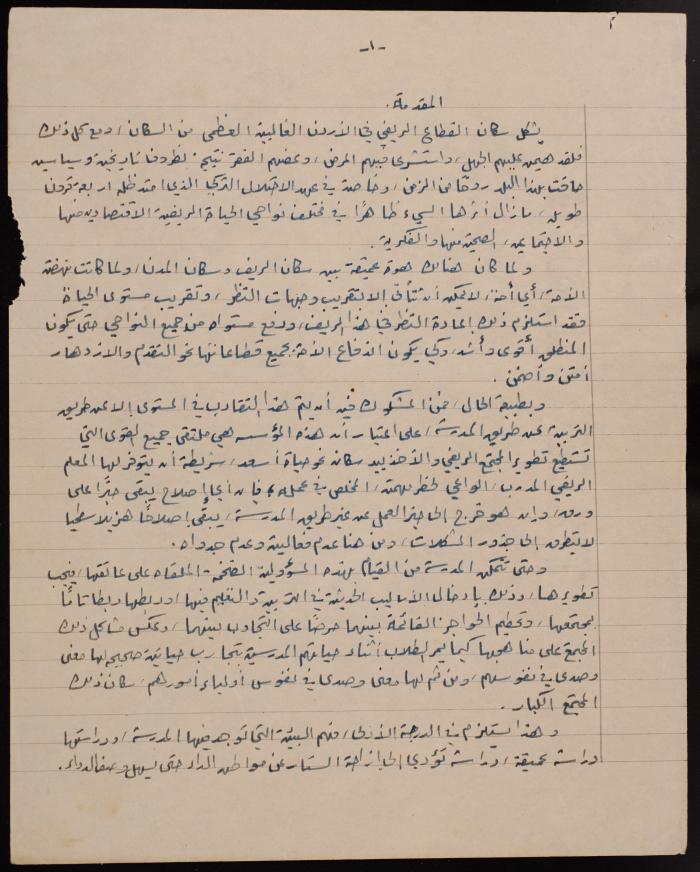 -١-
المقدمة.
يشكل سكان القطاع الريفي في الأردن الغالبية العظمى من السكان، ومع كل ذلك
فلقد هيمن عليهم الجهل، واستشرى فيهم المرض، وعضهم الفقر نتيجة لظروف تاريخية وسياسية
حاقت بهذا البلد ردحًا من الزمن، وخاصة في عهد الاحتلال التركي الذي امتد ظله أربعة قرون
طويلة، ما زال أثرها السيء ظاهرًا في مختلف نواحي الحياة الريفية الاقتصادية منها
والاجتماعية، الصحية منها والفكرية.
ولما كان هنالك هوة عميقة بين سكان الريف وسكان المدن، ولما كانت نهضة
الأمة، أي أمة، لا يمكن أن تتأتى إلا لتقريب وجهات النظر، وتقريب مستوى الحياة
فقد استلزم ذلك إعادة النظر في هذا الريف، ورفع مستواه من جميع النواحي حتى يكون
المنطلق أقوى وأشد، وكي يكون اندفاع الأمة بجميع قطاعاتها نحو التقدم والازدهار
أمتن وأضمن.
وبطبيعة الحال، فمن المشكوك فيه أن يتم هذا التقارب في المستوى إلا عن طريق
التربية عن طريق المدرسة، على اعتبار أن هذه المؤسسة هي ملتقى جميع القوى التي
تستطيع تطوير المجتمع الريفي والأخذ بيد سكانه نحو حياة أسعد، شريطة أن يتوفر لها المعلم
الريفي المدرب، الواعي لخطر مهمته، المخلص في عمله، فإن أي إصلاح يبقى حبرًا على
ورق، وإن هو خرج إلى حيز العمل عن غير طريق المدرسة، يبقى إصلاحًا هزيلا سطحيا
لا يتطرق إلى جذور المشكلات، ومن هنا عدم فعاليته وعدم جدواه.
وحتى تتمكن المدرسة من القيام بهذه المسؤولية الضخمة الملقاه على عاتقها، فيجب
تطويرها، وذلك بإدخال الأساليب الحديثة في التربية والتعليم فيها، وربطها ربطا تامًا
بمجتمعها، وتحطيم الحواجز القائمة بينهما حرصًا على التجاوب بينهما، وعكس مشاكل ذلك
المجتمع على مناهجها كيما يمر الطلاب أثناء حياتهم المدرسية بتجارب حياتية صحيحة لها معنى
وصدى في نفوسهم، ومن ثم لها معنى وصدى في نفوس أولياء أمورهم، سكان ذلك
المجتمع الكبار.
وهذا يستلزم في الدرجة الأولى، فهم البيئة التي توجد فيها المدرسة، ودراستها
دراسة عميقة، دراسة تؤدي إلى إزاحة الستار عن مواطن الداء حتى يسهل وصف الدواء.